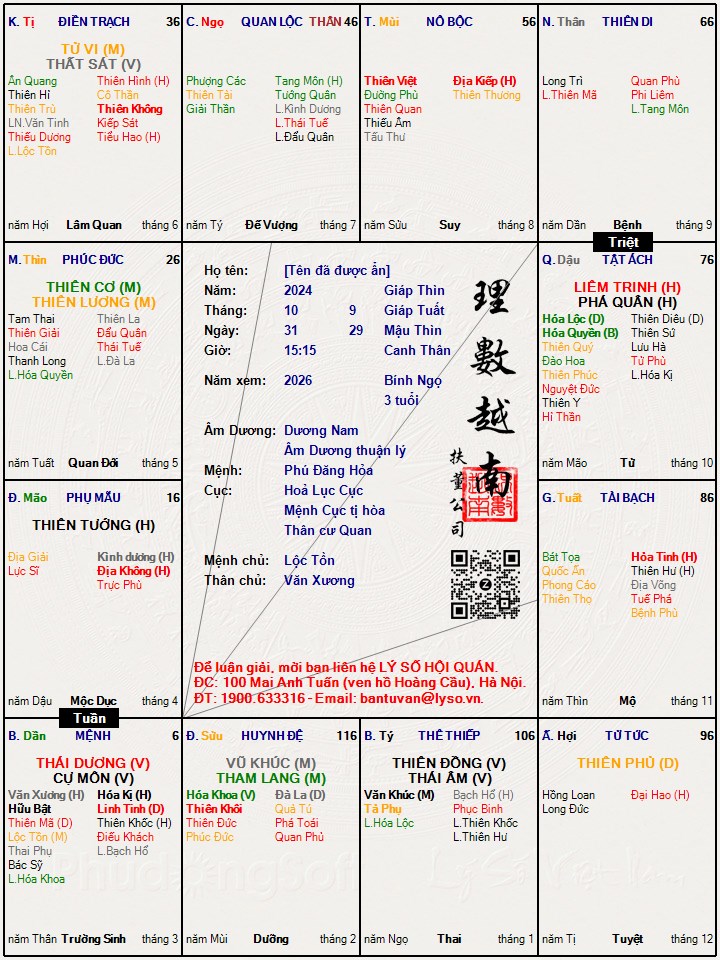 K. Tị ĐIỀN TRẠCH 36
TỬ VI (M)
THẤT SÁT (V)
Ân Quang Thiên Hình (H)
Thiên Hỉ Cô Thần
Thiên Trù Thiên Không
LN.Văn Tinh Kiếp Sát
Thiếu Dương Tiểu Hao (H)
L.Lộc Tồn
năm Hợi Lâm Quan tháng 6
C. Ngọ QUAN LỘC THÂN 46
Phượng Các Tang Môn (H)
Thiên Tài Tướng Quân
Giải Thần L.Kình Dương
L.Thái Tuế
L.Đẩu Quân
năm Tý Đế Vượng tháng 7
T. Mùi NÔ BỘC 56
Thiên Việt Địa Kiếp (H)
Đường Phù Thiên Thương
Thiên Quan
Thiếu Âm
Tấu Thư
năm Sửu Suy tháng 8
N. Thân THIÊN DI 66
Long Trì Quan Phù
L.Thiên Mã Phi Liêm
L.Tang Môn
năm Dần Bệnh tháng 9
Triệt
M. Thìn PHÚC ĐỨC 26
THIÊN CƠ (M)
THIÊN LƯƠNG (M)
Tam Thai Thiên La
Thiên Giải Đẩu Quân
Hoa Cái Thái Tuế
Thanh Long L.Đà La
L.Hóa Quyền
năm Tuất Quan Đới tháng 5
Họ tên: [Tên đã được ẩn]
Năm: 2024 Giáp Thìn
Tháng: 10 9 Giáp Tuất
Ngày: 31 29 Mậu Thìn
Giờ: 15:15 Canh Thân
Năm xem: 2026 Bính Ngọ
3 tuổi
Âm Dương: Dương Nam
Âm Dương thuận lý
Mệnh: Phú Đăng Hỏa
Cục: Hoả Lục Cục
Mệnh Cục tị hòa
Thân cư Quan
Mệnh chủ: Lộc Tồn
Thân chủ: Văn Xương
理數越南
扶董公司
Để luận giải, mời bạn liên hệ LÝ SỐ HỘI QUÁN.
ĐC: 100 Mai Anh Tuấn (ven hồ Hoàng Cầu), Hà Nội.
ĐT: 1900.633316 - Email: bantuvan@lyso.vn.
Q. Dậu TẬT ÁCH 76
LIÊM TRINH (H)
PHÁ QUÂN (H)
Hóa Lộc (D) Thiên Diêu (D)
Hóa Quyền (B) Thiên Sứ
Thiên Quý Lưu Hà
Đào Hoa Tử Phù
Thiên Phúc L.Hóa Kị
Nguyệt Đức
Thiên Y
Hỉ Thần
năm Mão Tử tháng 10
Đ. Mão PHỤ MẪU 16
THIÊN TƯỚNG (H)
Địa Giải Kình dương (H)
Lực Sĩ Địa Không (H)
Trực Phù
năm Dậu Mộc Dục tháng 4
G. Tuất TÀI BẠCH 86
Bát Tọa Hỏa Tinh (H)
Quốc Ấn Thiên Hư (H)
Phong Cáo Địa Võng
Thiên Thọ Tuế Phá
Bệnh Phù
năm Thìn Mộ tháng 11
Tuần
B. Dần MỆNH 6
THÁI DƯƠNG (V)
CỰ MÔN (V)
Văn Xương (H) Hóa Kị (H)
Hữu Bật Linh Tinh (D)
Thiên Mã (D) Thiên Khốc (H)
Lộc Tồn (M) Điếu Khách
Thai Phụ L.Bạch Hổ
Bác Sỹ
L.Hóa Khoa
năm Thân Trường Sinh tháng 3
Đ. Sửu HUYNH ĐỆ 116
VŨ KHÚC (M)
THAM LANG (M)
Hóa Khoa (V) Đà La (D)
Thiên Khôi Quả Tú
Thiên Đức Phá Toái
Phúc Đức Quan Phủ
năm Mùi Dưỡng tháng 2
B. Tý THÊ THIẾP 106
THIÊN ĐỒNG (V)
THÁI ÂM (V)
Văn Khúc (M) Bạch Hổ (H)
Tả Phụ Phục Binh
L.Hóa Lộc L.Thiên Khốc
L.Thiên Hư
năm Ngọ Thai tháng 1
Ấ. Hợi TỬ TỨC 96
THIÊN PHỦ (D)
Hồng Loan Đại Hao (H)
Long Đức
năm Tị Tuyệt tháng 12